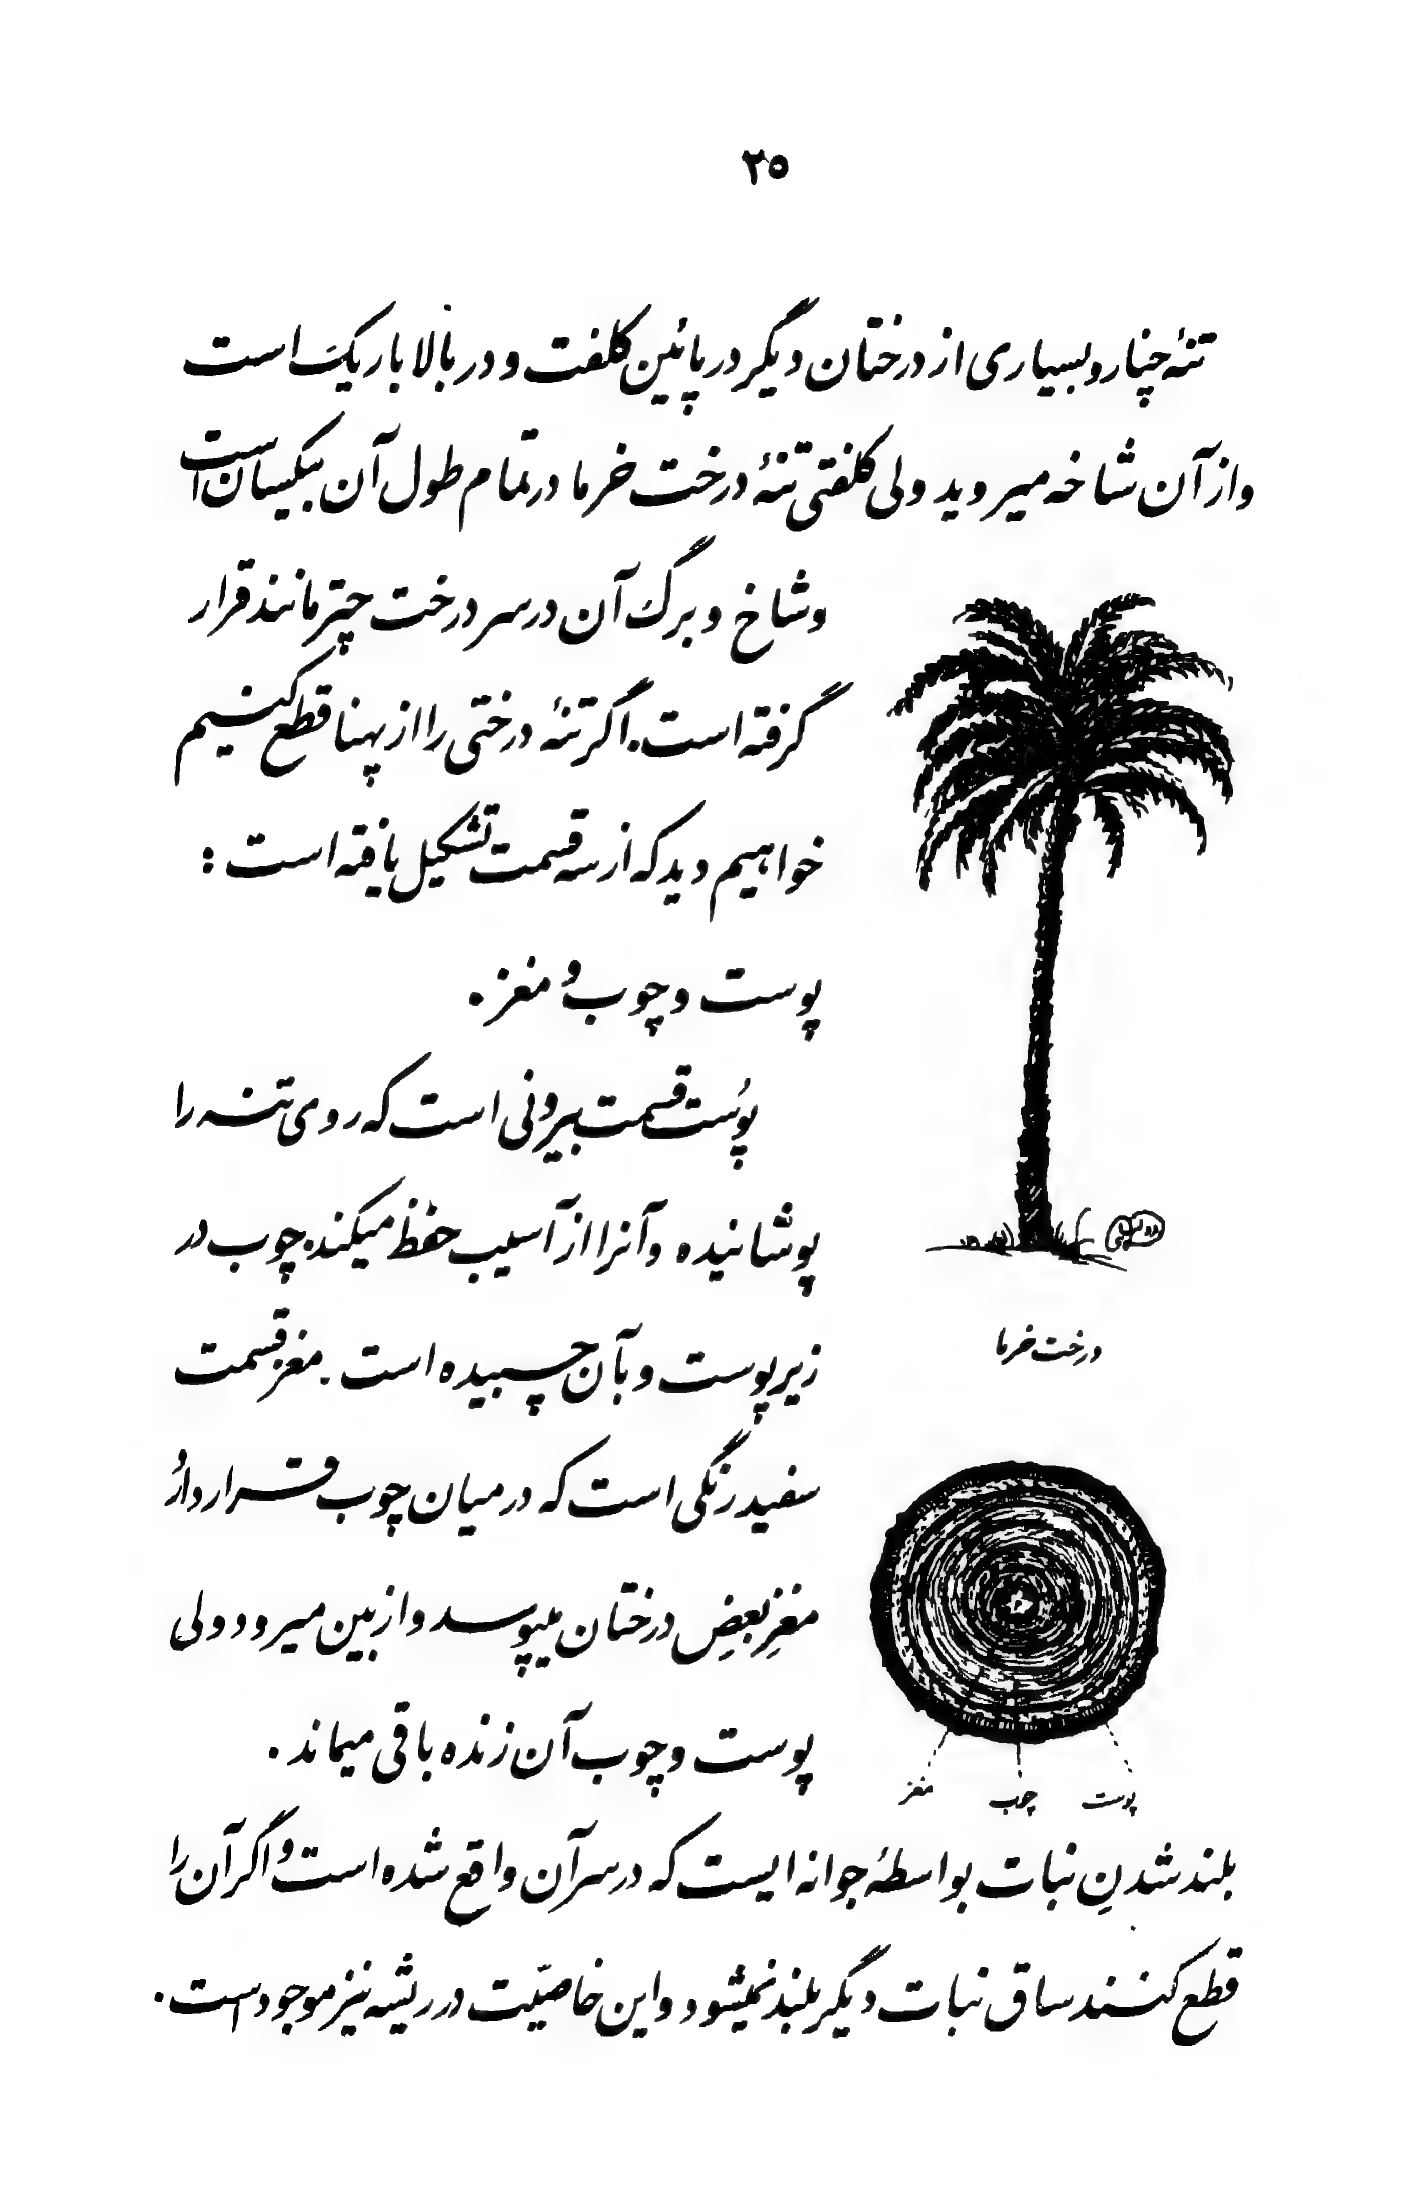 ۲۵
تنهٔ چنار و بسیاری از درختان دیگر در پائین کلفت و در بالا باریک است
و از آن شاخه میروید ولی کلفتی تنهٔ درخت خرما در تمام طول آن یکسان است
و شاخ و برگ آن در سر درخت چتر مانند قرار
گرفته است. اگر تنهٔ درختی را از پهنا قطع کنیم
خواهیم دید که از سه قسمت تشکیل یافته است :
پوست و چوب و مغز .
پوست قسمت بیرونی است که روی تنه را
پوشانیده و آنرا از آسیب حفظ میکند. چوب در
زیر پوست و بآن چسبیده است . مغز قسمت
سفید رنگی است که در میان چوب قرار دارد
مغزِ بعضِ درختان میپوسد و از بین میرود ولی
پوست و چوب آن زنده باقی میماند .
درخت خرما
پوست چوب مغز
بلند شدنِ نبات بواسطهٔ جوانه ایست که در سر آن واقع شده است و اگر آن را
قطع کنند ساق نبات دیگر بلند نمیشود و این خاصیّت در ریشه نیز موجود است .